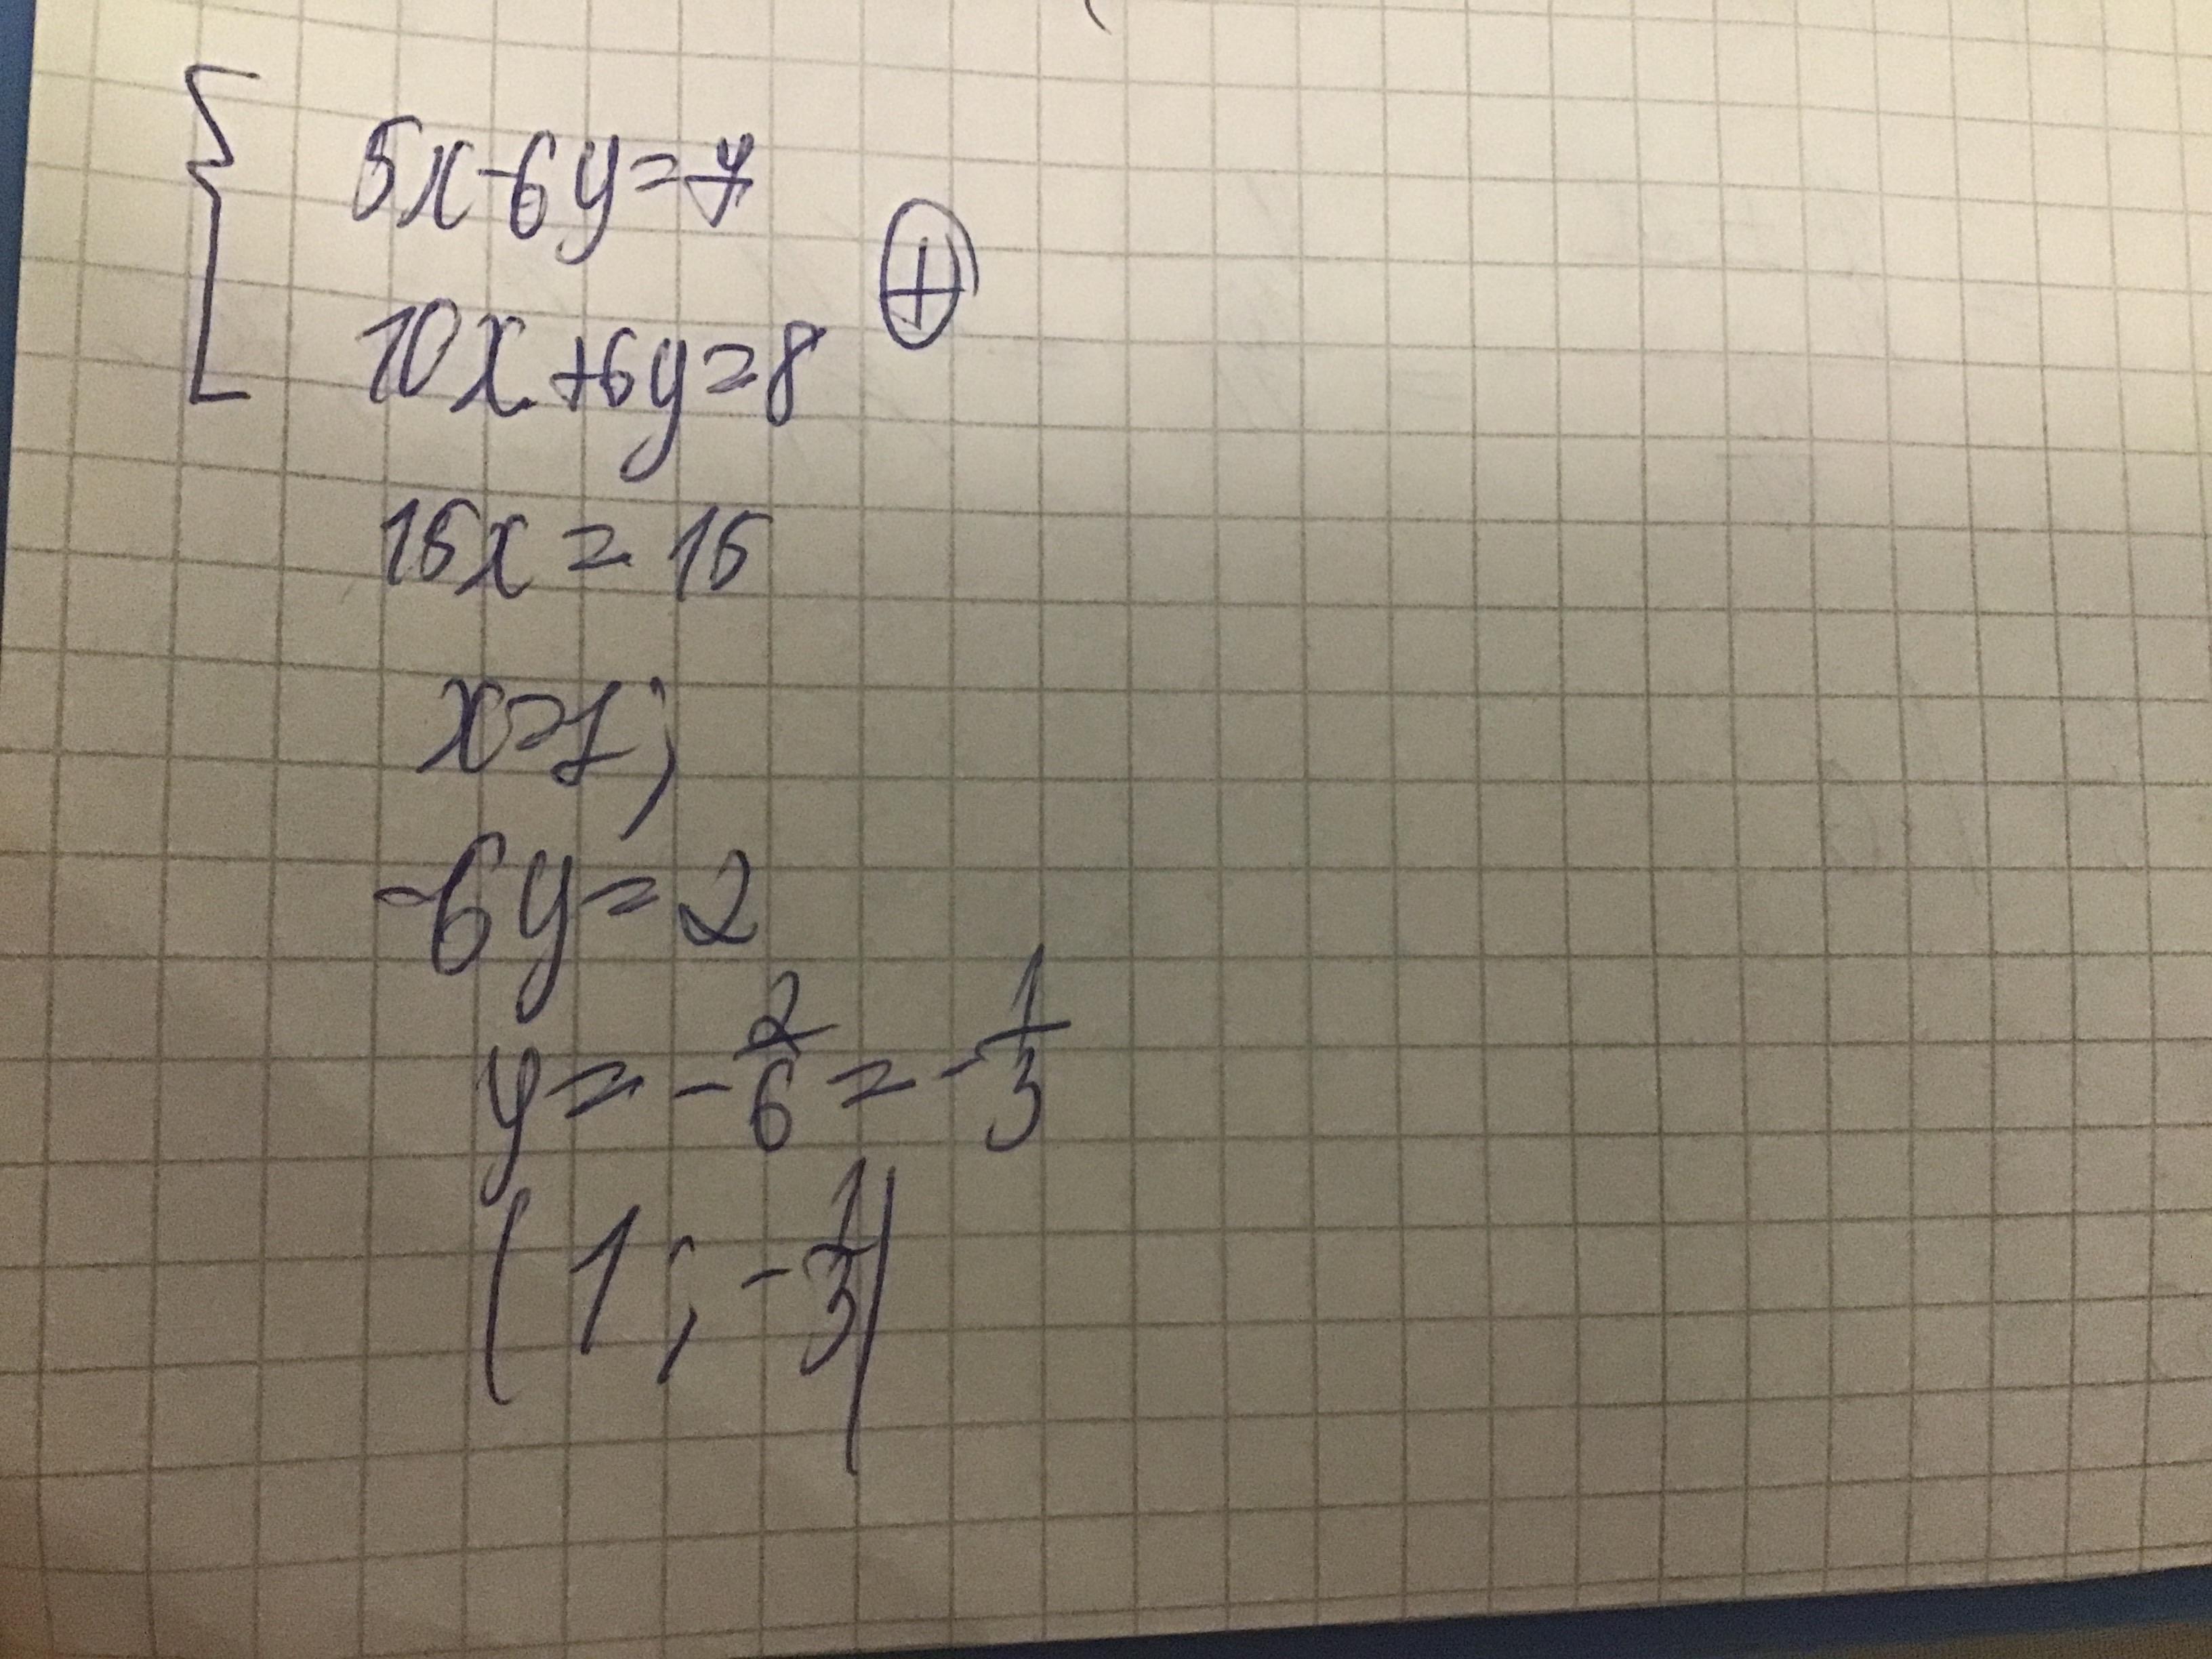 { 5x-6y=7
10x+6y=8 ⊕
15x=15
x=1;
-6y=2
y=-2/6=-1/3
(1;-1/3)